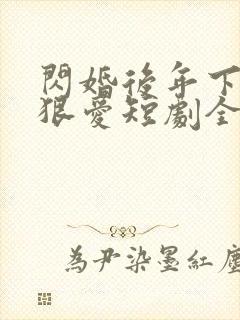 閃婚後年下
狠愛短劇全
為尹染墨紅塵